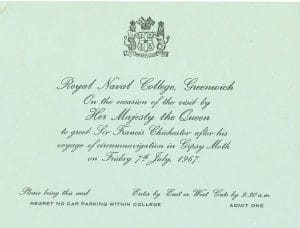 Royal Naval College, Greenwich
On the occasion of the visit by
Her Majesty the Queen
to greet Sir Francis Chichester after his
voyage of circumnavigation in Gipsy Moth
on Friday 7th July, 1967.
Please bring this card
Enter by East or West Gate by 9.30 a.m.
REGRET NO CAR PARKING WITHIN COLLEGE
ADMIT ONE